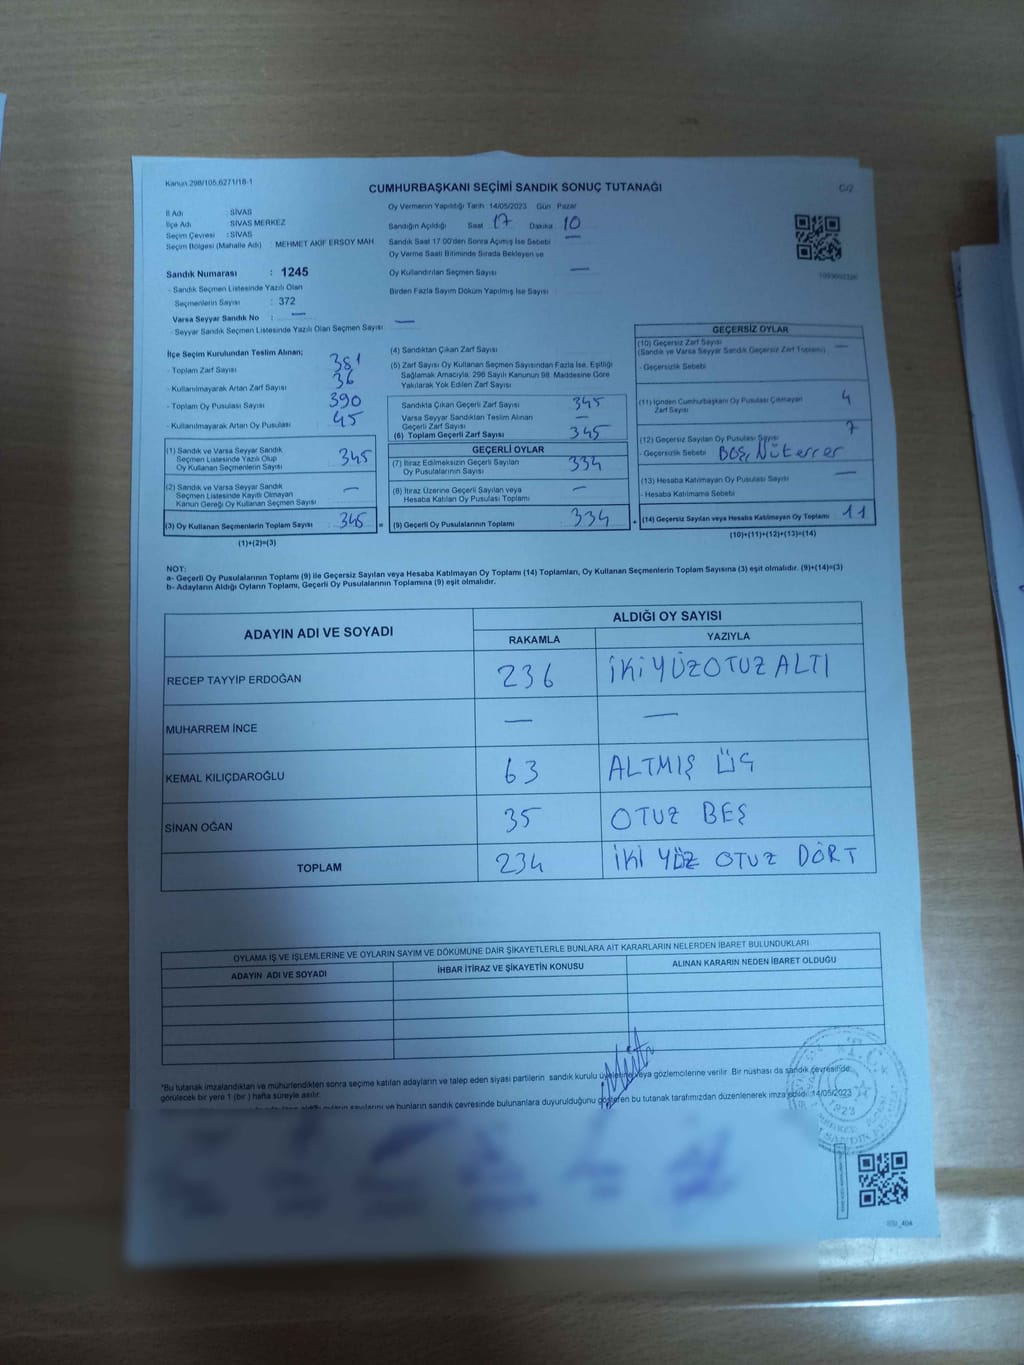 Kanun 298/105,6271/18-1
CUMHURBAŞKANI SEÇİMİ SANDIK SONUÇ TUTANAĞI
C/2
İl Adı : SİVAS
İlçe Adı : SİVAS MERKEZ
Seçim Çevresi : SİVAS
Seçim Bölgesi (Mahalle Adı) : MEHMET AKİF ERSOY MAH
Sandık Numarası : 1245
- Sandık Seçmen Listesinde Yazılı Olan
Seçmenlerin Sayısı : 372
Varsa Seyyar Sandık No : —
- Seyyar Sandık Seçmen Listesinde Yazılı Olan Seçmen Sayısı : —
Oy Vermenin Yapıldığı Tarih : 14/05/2023 Gün Pazar
Sandığın Açıldığı Saat 17 Dakika 10
Sandık Saat 17:00'den Sonra Açılmış İse Sebebi —
Oy Verme Saati Bitiminde Sırada Bekleyen ve
Oy Kullandırılan Seçmen Sayısı —
Birden Fazla Sayım Döküm Yapılmış İse Sayısı
İlçe Seçim Kurulundan Teslim Alınan;
- Toplam Zarf Sayısı 381
- Kullanılmayarak Artan Zarf Sayısı 36
- Toplam Oy Pusulası Sayısı 390
- Kullanılmayarak Artan Oy Pusulası 45
(1) Sandık ve Varsa Seyyar Sandık
Seçmen Listesinde Yazılı Olup
Oy Kullanan Seçmenlerin Sayısı 345
(2) Sandık ve Varsa Seyyar Sandık
Seçmen Listesinde Kayıtlı Olmayan
Kanun Gereği Oy Kullanan Seçmen Sayısı —
(3) Oy Kullanan Seçmenlerin Toplam Sayısı 345 =
(1)+(2)=(3)
(4) Sandıktan Çıkan Zarf Sayısı
(5) Zarf Sayısı Oy Kullanan Seçmen Sayısından Fazla İse, Eşitliği
Sağlamak Amacıyla, 298 Sayılı Kanunun 98. Maddesine Göre
Yakılarak Yok Edilen Zarf Sayısı
Sandıkta Çıkan Geçerli Zarf Sayısı 345
Varsa Seyyar Sandıktan Teslim Alınan
Geçerli Zarf Sayısı —
(6) Toplam Geçerli Zarf Sayısı 345
GEÇERLİ OYLAR
(7) İtiraz Edilmeksizin Geçerli Sayılan
Oy Pusulalarının Sayısı 334
(8) İtiraz Üzerine Geçerli Sayılan veya
Hesaba Katılan Oy Pusulası Toplamı —
(9) Geçerli Oy Pusulalarının Toplamı 334 +
GEÇERSİZ OYLAR
(10) Geçersiz Zarf Sayısı
(Sandık ve Varsa Seyyar Sandık Geçersiz Zarf Toplamı) —
- Geçersizlik Sebebi
(11) İçinden Cumhurbaşkanı Oy Pusulası Çıkmayan
Zarf Sayısı 4
(12) Geçersiz Sayılan Oy Pusulası Sayısı 7
- Geçersizlik Sebebi BOŞ,
(13) Hesaba Katılmayan Oy Pusulası Sayısı —
- Hesaba Katılmama Sebebi
(14) Geçersiz Sayılan veya Hesaba Katılmayan Oy Toplamı 11
(10)+(11)+(12)+(13)=(14)
NOT:
a- Geçerli Oy Pusulalarının Toplamı (9) ile Geçersiz Sayılan veya Hesaba Katılmayan Oy Toplamı (14) Toplamları, Oy Kullanan Seçmenlerin Toplam Sayısına (3) eşit olmalıdır. (9)+(14)=(3)
b- Adayların Aldığı Oyların Toplamı, Geçerli Oy Pusulalarının Toplamına (9) eşit olmalıdır.
ADAYIN ADI VE SOYADI
ALDIĞI OY SAYISI
RAKAMLA YAZIYLA
RECEP TAYYİP ERDOĞAN 236 İKİ YÜZ OTUZ ALTI
MUHARREM İNCE — —
KEMAL KILIÇDAROĞLU 63 ALTMIŞ ÜÇ
SİNAN OĞAN 35 OTUZ BEŞ
TOPLAM 234 İKİ YÜZ OTUZ DÖRT
OYLAMA İŞ VE İŞLEMLERİNE VE OYLARIN SAYIM VE DÖKÜMÜNE DAİR ŞİKAYETLERLE BUNLARA AİT KARARLARIN NELERDEN İBARET BULUNDUKLARI
ADAYIN ADI VE SOYADI İHBAR İTİRAZ VE ŞİKAYETİN KONUSU ALINAN KARARIN NEDEN İBARET OLDUĞU
*Bu tutanak imzalandıktan ve mühürlendikten sonra seçime katılan adayların ve talep eden siyasi partilerin sandık kurulu üyelerine veya gözlemcilerine verilir. Bir nüshası da sandık çevresinde
görülecek bir yere 1 (bir) hafta süreyle asılır.
sayılarını ve bunların sandık çevresinde bulunanlara duyurulduğunu gösteren bu tutanak tarafımızdan düzenlenerek imza edildi. 14/05/2023
T.C.
1923